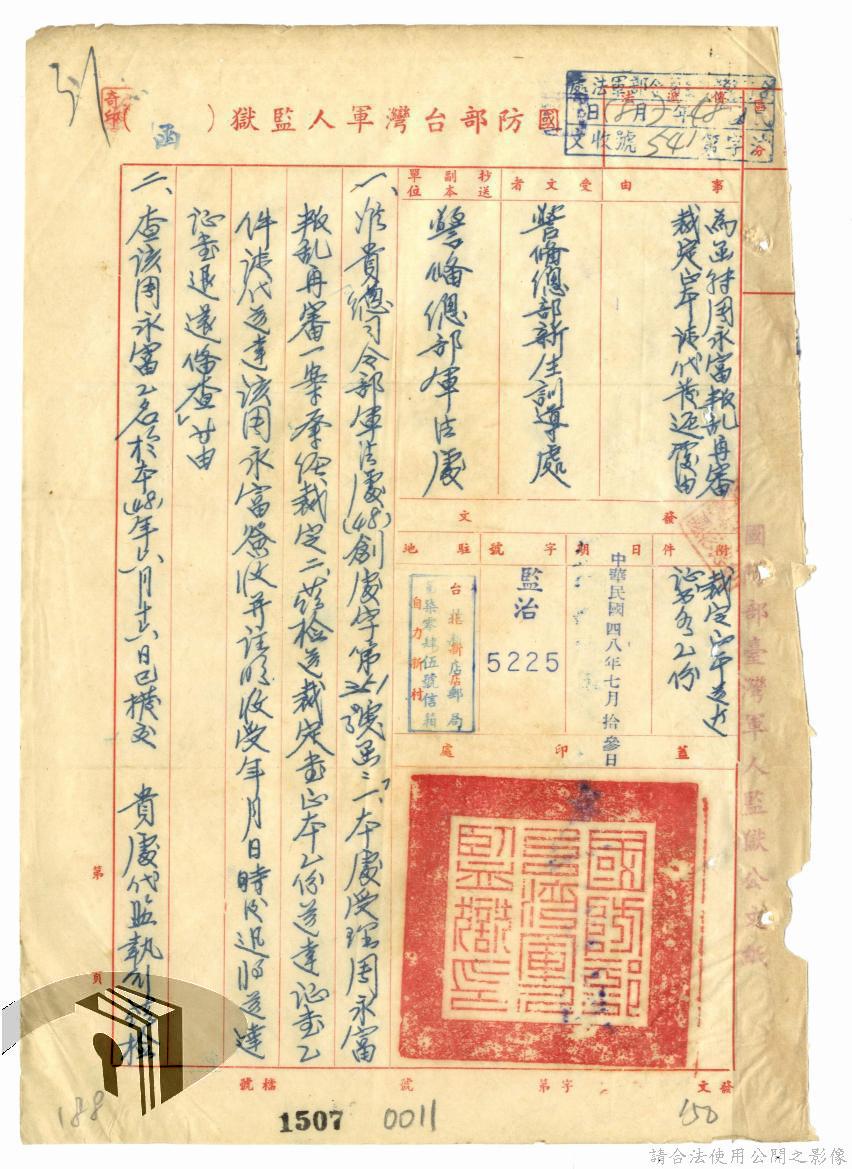 國防部台灣軍人監獄(函)
奇印
處法軍部
48年8月 日
收文 字第541號
事由
為函轉周永富叛乱再審
裁定正本請代發還覆由
受文者
警備總部新生訓導處
抄送副本單位
警備總部軍法處
附件
裁定正本送達
証書各乙份
發文
日期
中華民國四八年七月拾參日
字號
監治
5225
駐地
台北新店郵局
第柒零肆伍號信箱
自力新村
蓋印處
國防部臺灣軍人監獄印
一、准貴總司令部軍法處(48)創處字第 號函:「一、本處受理周永富
叛乱再審一案業經裁定二、茲檢送裁定書正本乙份送達証書乙
件請代送達該周永富簽收并註明收受年月日時後迅將送達
証書退還備查」等由
二、查該周永富乙名於本(48)年六月 日已移交 貴處代監執行茲檢
國防部臺灣軍人監獄公文紙
第 頁
發文 字第 號
檔號
188
1507
0011
150
請合法使用公開之影像